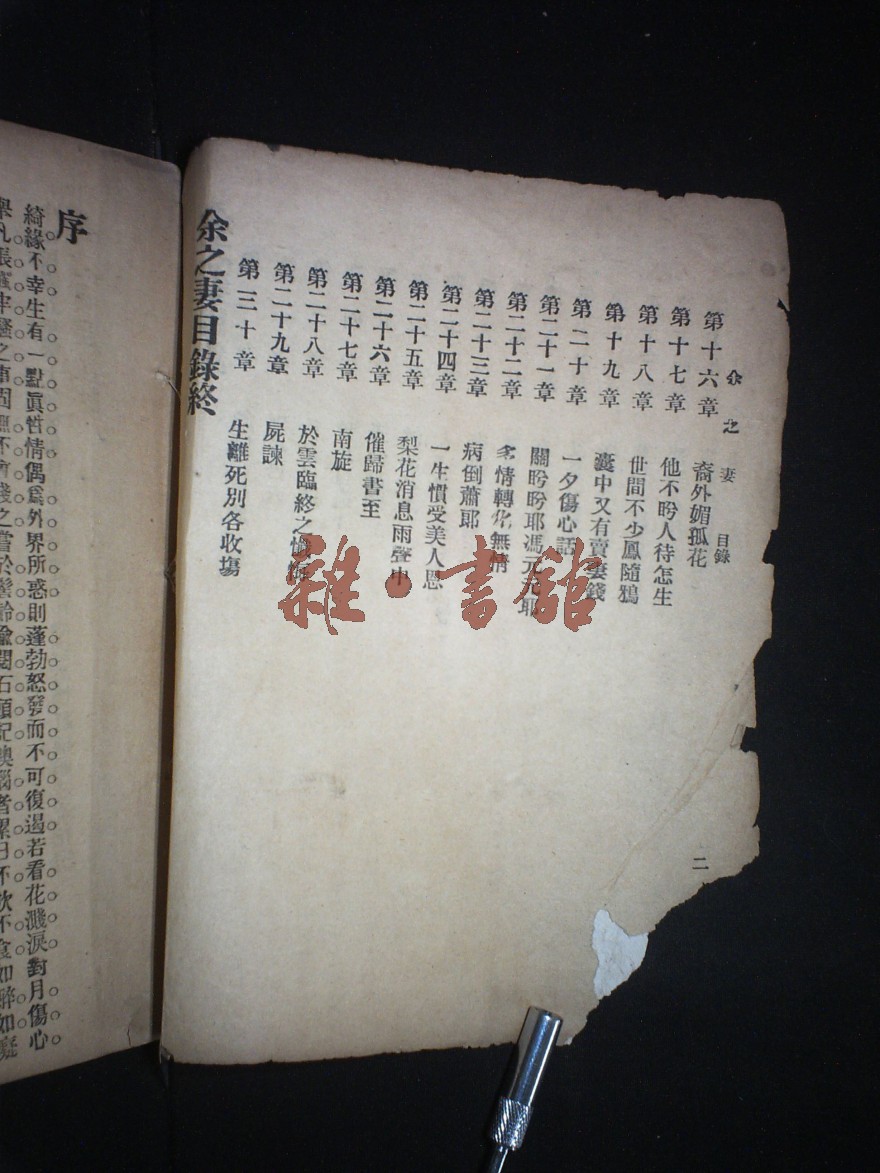 余之妻 目錄
第十六章 裔外媚孤花
第十七章 他不盼人待怎生
第十八章 世間不少鳳隨鴉
第十九章 囊中又有賣妻錢
第二十章 一夕傷心話
第二十一章 關盼盼耶馮元元耶
第二十二章 多情轉化無情
第二十三章 病倒蕭郎
第二十四章 一生慣受美人恩
第二十五章 梨花消息雨聲中
第二十六章 催歸書至
第二十七章 南旋
第二十八章 於雲臨終之懺悔
第二十九章 屍諫
第三十章 生離死別各收塲
余之妻目錄終
二
序
綺緣不幸生有一點眞性情偶爲外界所惑則蓬勃怒發而不可復遏若看花濺淚對月傷心
雜·書館